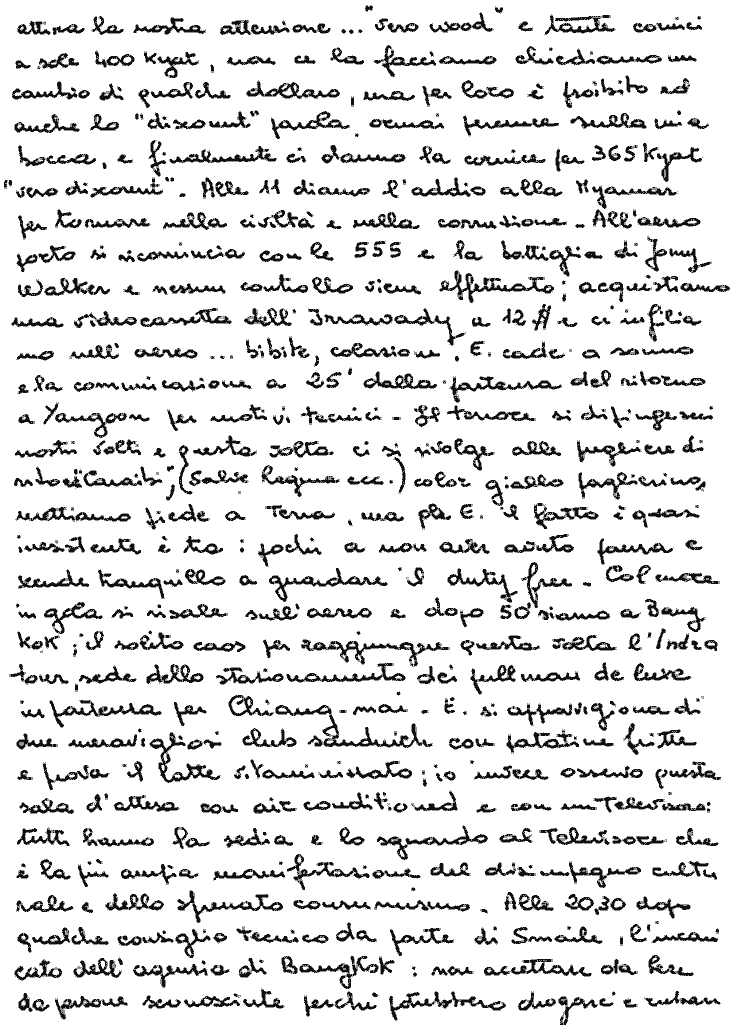 attira la nostra attenzione ... "vero wood" e tante cornici
a sole 400 Kyat, non ce la facciamo chiediamo un
cambio di qualche dollaro, ma per loro è proibito ed
anche lo "discount" parola ormai perenne sulla mia
bocca, e finalmente ci danno la cornice per 365 Kyat
"vero discount". Alle 11 diamo l'addio alla Myamar
per tornare nella civiltà e nella corruzione - All'aereo
porto si ricomincia con le 555 e la bottiglia di Jonny
Walker e nessun controllo viene effettuato; acquistiamo
una videocassetta dell'Irrawady a 12 $ e ci infilia
mo nell'aereo ... bibite, colazione, E. cade a sonno
e la comunicazione a 25' dalla partenza del ritorno
a Yangoon per motivi tecnici - Il terrore si dipinge sui
nostri volti e questa volta ci si rivolge alle preghiere di
"Caraibi", (Salve Regina ecc.) color giallo paglierino,
mettiamo piede a Terra, ma per E. il fatto è quasi
inesistente è tra i pochi a non aver avuto paura e
scende tranquillo a guardare il duty free - Col cuore
in gola si risale sull'aereo e dopo 50' siamo a Bang
Kok; il solito caos per raggiungere questa volta l'Indra
tour, sede dello stazionamento dei pullman de luxe
in partenza per Chiang-mai - E. si approvvigiona di
due meravigliosi club sandwich con patatine fritte
e prova il latte vitaminizzato; io invece osservo questa
sala d'attesa con air conditioned e con un Televisore:
tutti hanno la sedia e lo sguardo al Televisore che
è la più ampia manifestazione del disimpegno cultu
rale e dello sfrenato consumismo. Alle 20,30 dopo
qualche consiglio tecnico da parte di Smaile, l'incari
cato dell'agenzia di BangKok: non accettare da bere
da persone sconosciute perché potrebbero drogarci e rubarci